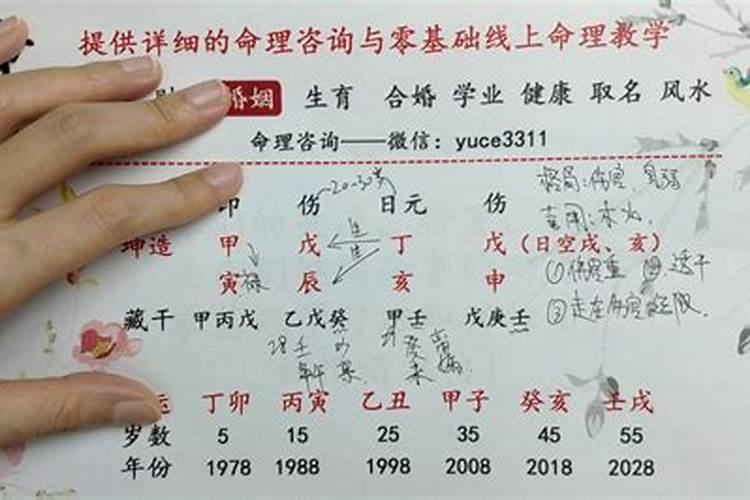 提供详细的命理咨询与零基础线上命理教学
婚姻 生育 合婚 学业 健康 取名 风水
命理咨询——微信：yuce3311
~20-30岁
印 伤 日元 伤
格局:伤官,身弱
喜用:木火.
坤造 甲 戊 丁 戊（日空戌、亥）
生
生
寅 辰 亥 申
禄
①伤官重
透干
③走在伤官
藏干 甲丙戊 乙戊癸 甲壬 戊庚壬
运 丁卯 丙寅 乙丑 甲子 癸亥 壬戌
岁数 5 15 25 35 45 55
年份 1978 1988 1998 2008 2018 2028